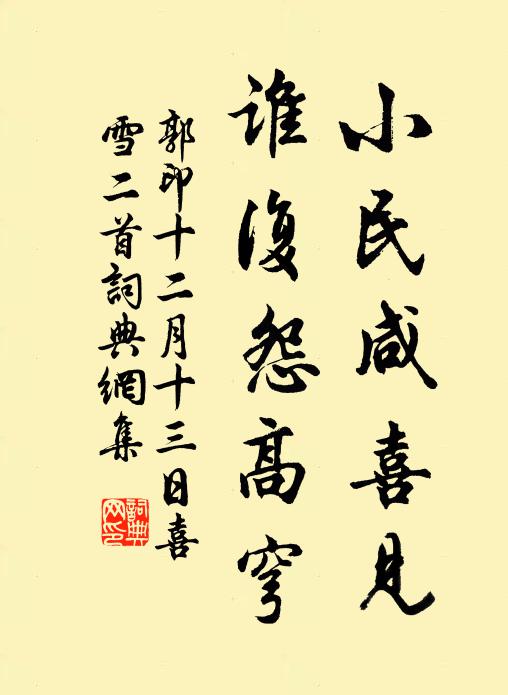 小民咸喜見
誰復怨高穹
郭印十二月十三日喜
雪二首詞典網集
詞典網印